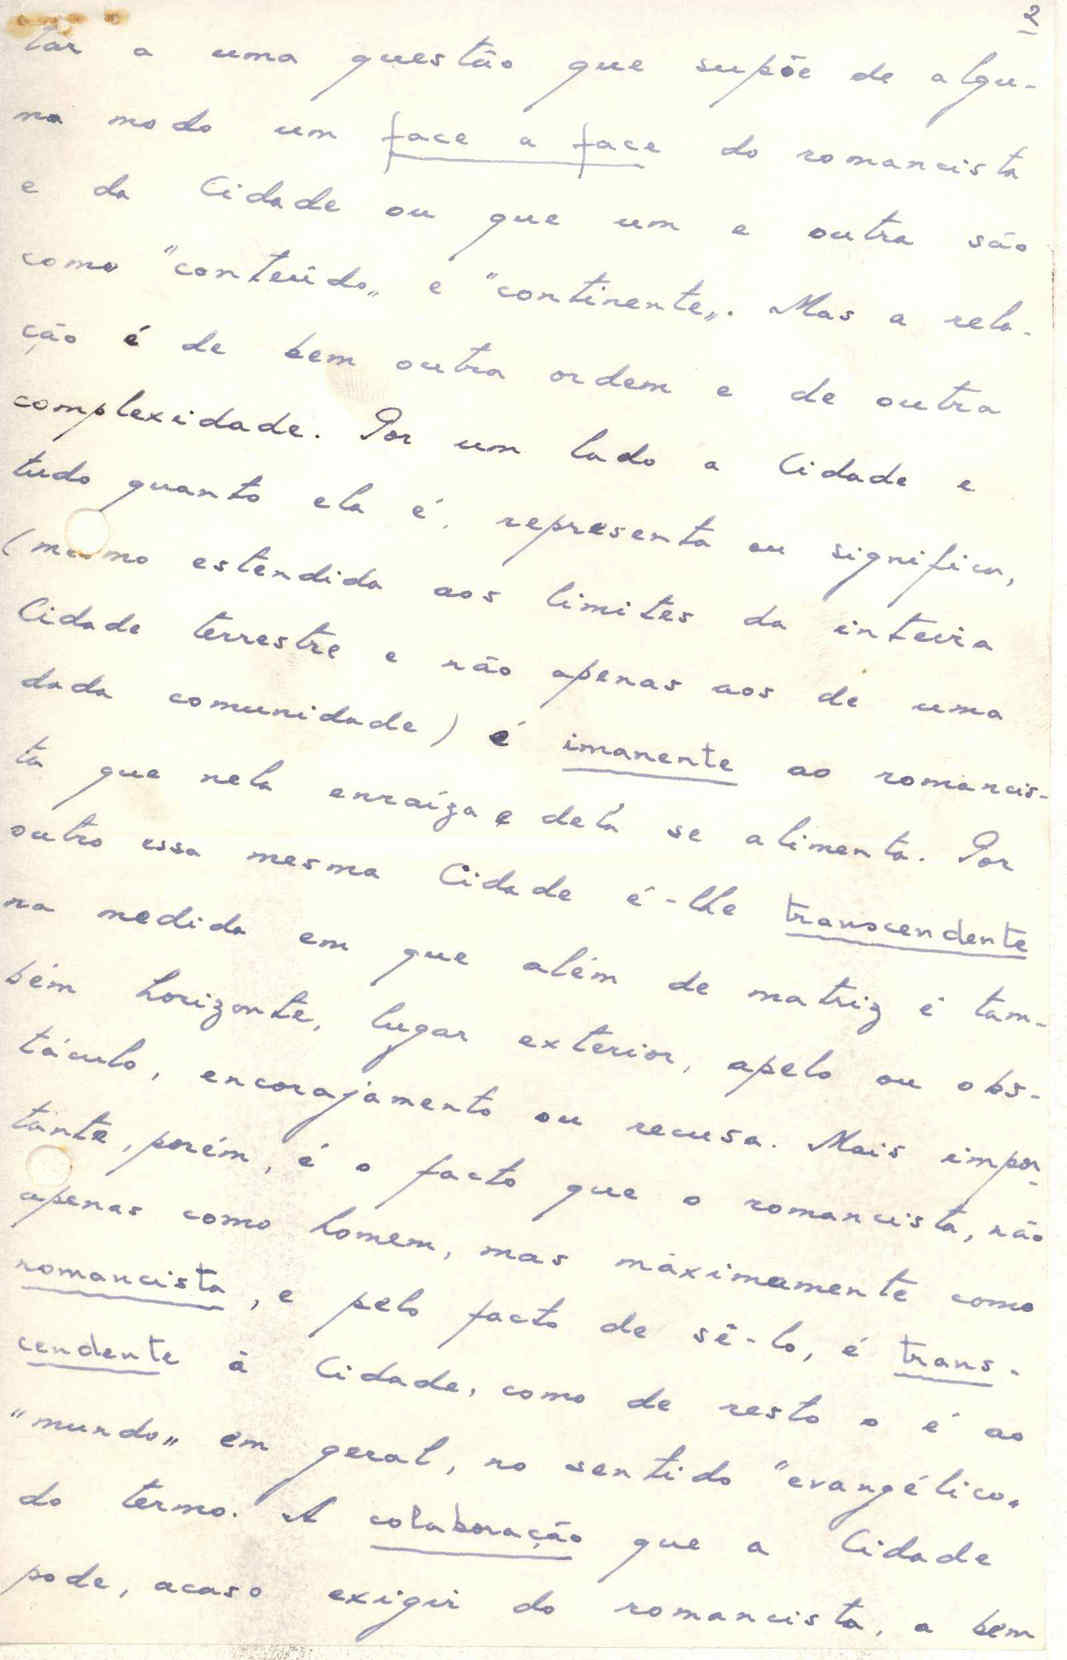 2
tar a uma questão que supõe de algu-
ma modo um face a face do romancista
e da Cidade ou que um e outra são
como "conteúdo„ e "continente„. Mas a rela-
ção é de bem outra ordem e de outra
complexidade. Por um lado a Cidade e
tudo quanto ela é, representa ou significa,
(mesmo estendida aos limites da inteira
Cidade terrestre e não apenas aos de uma
dada comunidade) é imanente ao romancis-
ta que nela enraíza e dela se alimenta. Por
outro essa mesma Cidade é-lhe transcendente
na medida em que além de matriz é tam-
bém horizonte, lugar exterior, apelo ou obs-
táculo, encorajamento ou recusa. Mais impor-
tante, porém, é o facto que o romancista, não
apenas como homem, mas màximamente como
romancista, e pelo facto de sê-lo, é trans-
cendente à Cidade, como de resto o é ao
"mundo„ em geral, no sentido "evangélico„
do termo. A colaboração que a Cidade
pode, acaso exigir do romancista, a bem